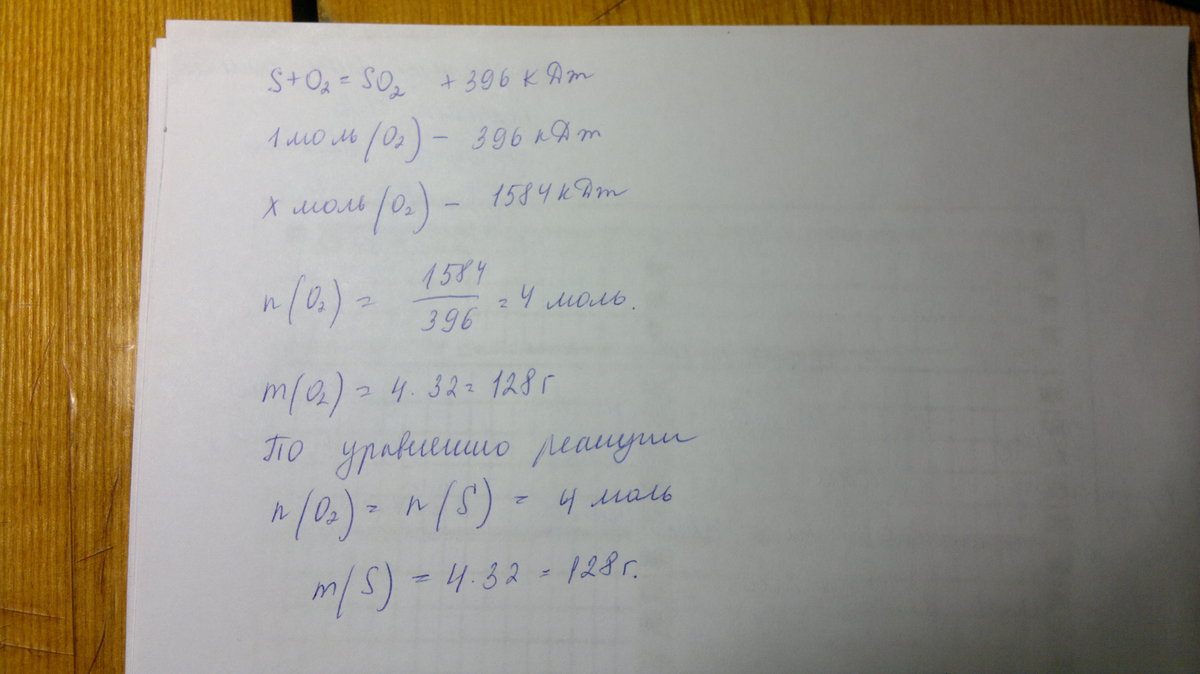 S+O₂ = SO₂ + 396 кДж
1 моль (O₂) – 396 кДж
x моль (O₂) – 1584 кДж
n(O₂) = 1584/396 = 4 моль.
m(O₂) = 4·32 = 128 г
По уравнению реакции
n(O₂) = n(S) = 4 моль
m(S) = 4·32 = 128 г.